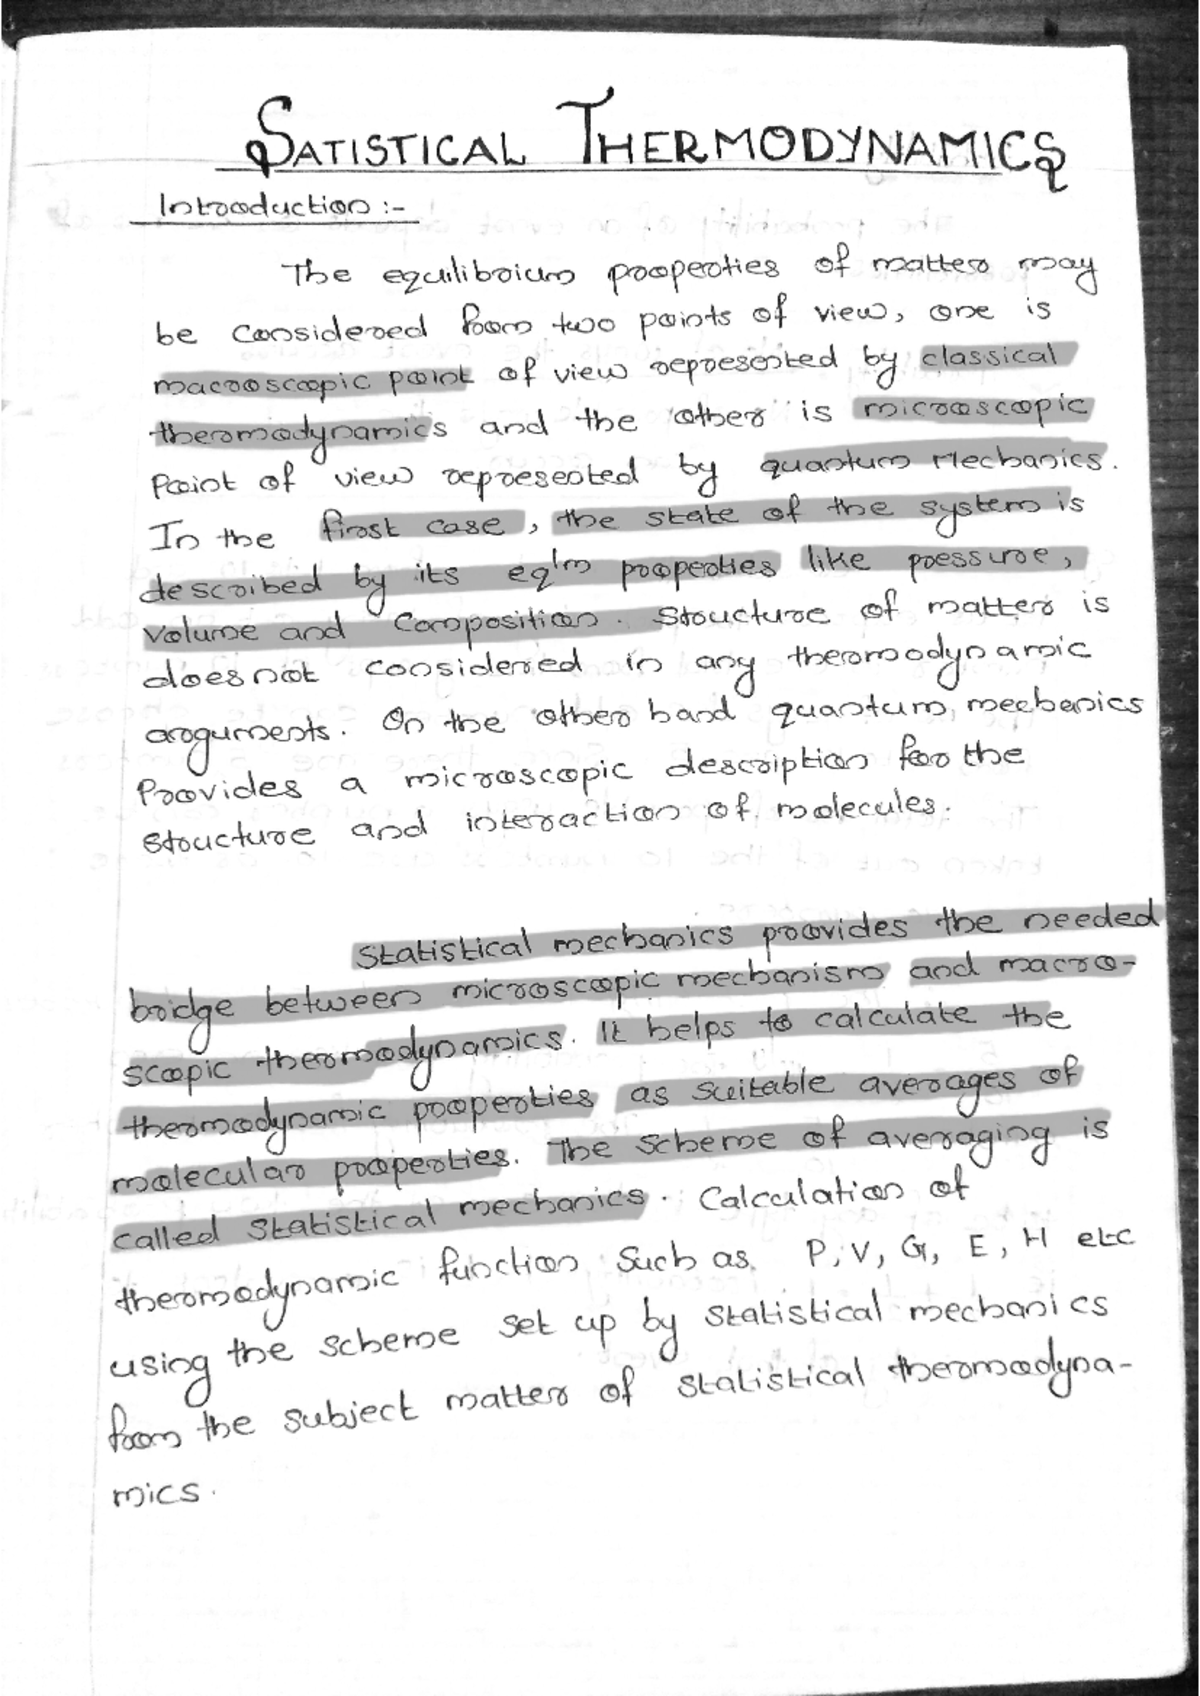 SATISTICAL THERMODYNAMICS
Introduction :-
The equilibrium properties of matter may
be considered from two points of view, one is
macroscopic point of view represented by classical
thermodynamics and the other is microscopic
Point of view represented by quantum Mechanics.
In the first case, the state of the system is
described by its eq'm properties like pressure,
volume and Composition. Structure of matter is
does not considered in any thermodynamic
arguments. On the other hand quantum mechanics
Provides a microscopic description for the
structure and interaction of molecules.
Statistical mechanics provides the needed
bridge between microscopic mechanism and macro-
scopic thermodynamics. It helps to calculate the
thermodynamic properties as suitable averages of
molecular properties. The scheme of averaging is
called statistical mechanics. Calculation of
thermodynamic function such as P, V, G, E, H etc
using the scheme set up by statistical mechanics
from the subject matter of statistical thermodyna-
mics.